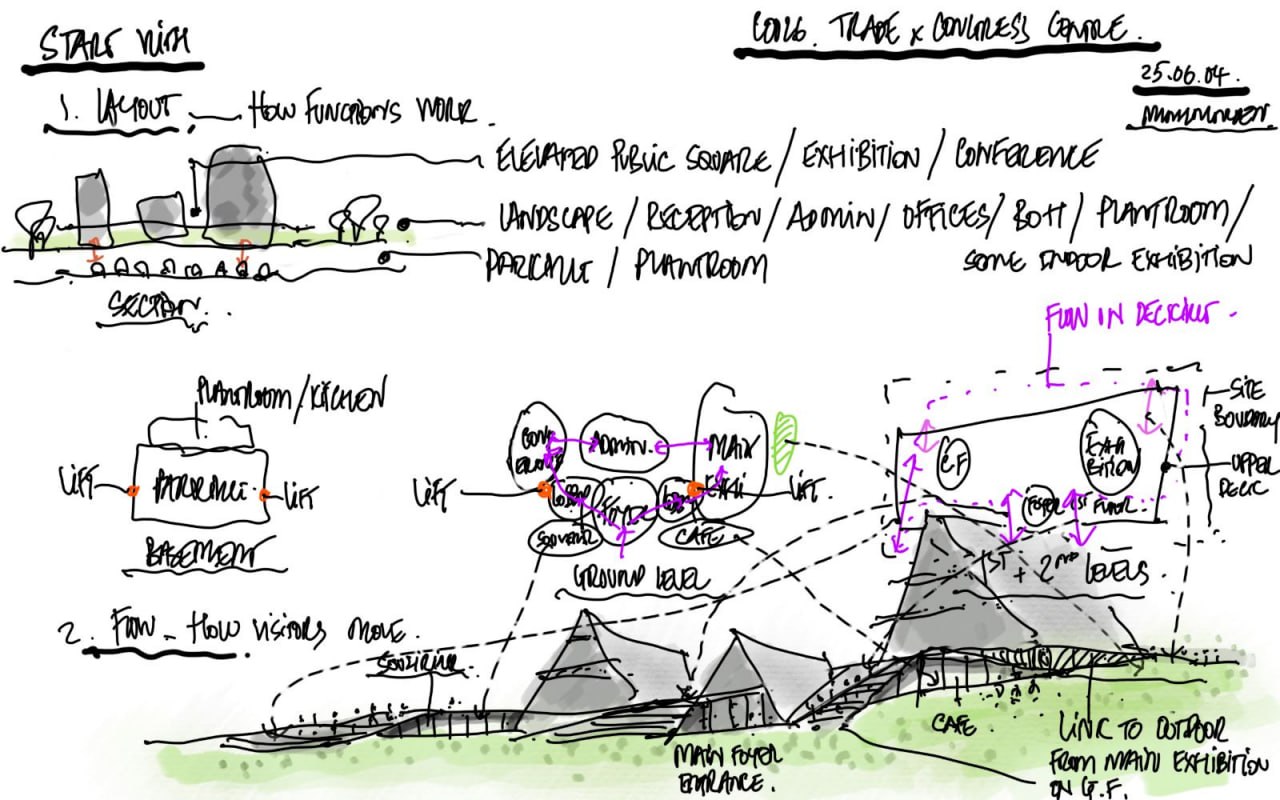 START WITH
TRADE & CONGRESS CENTRE.
25.06.04.
1. LAYOUT - HOW FUNCTIONS WORK.
ELEVATED PUBLIC SQUARE / EXHIBITION / CONFERENCE
LANDSCAPE / RECEPTION / ADMIN / OFFICES / BOH / PLANTROOM /
SOME INDOOR EXHIBITION
PARKADE / PLANTROOM
SECTION.
FLOW IN
PLANTROOM / KITCHEN
LIFT
PARKADE
LIFT
BASEMENT
ADMIN.
MAIN
EXHI
LIFT
LIFT.
FOYER
SOUVENIR
CAFE
GROUND LEVEL
C.F
EXHI
BITION
SITE
BOUNDARY
UPPER
DECK
FOYER 1ST FLOOR.
1ST + 2ND LEVELS
2. FLOW - HOW VISITORS MOVE.
SOUVENIR
MAIN FOYER
ENTRANCE.
CAFE
LINK TO OUTDOOR
FROM MAIN EXHIBITION
ON G.F.